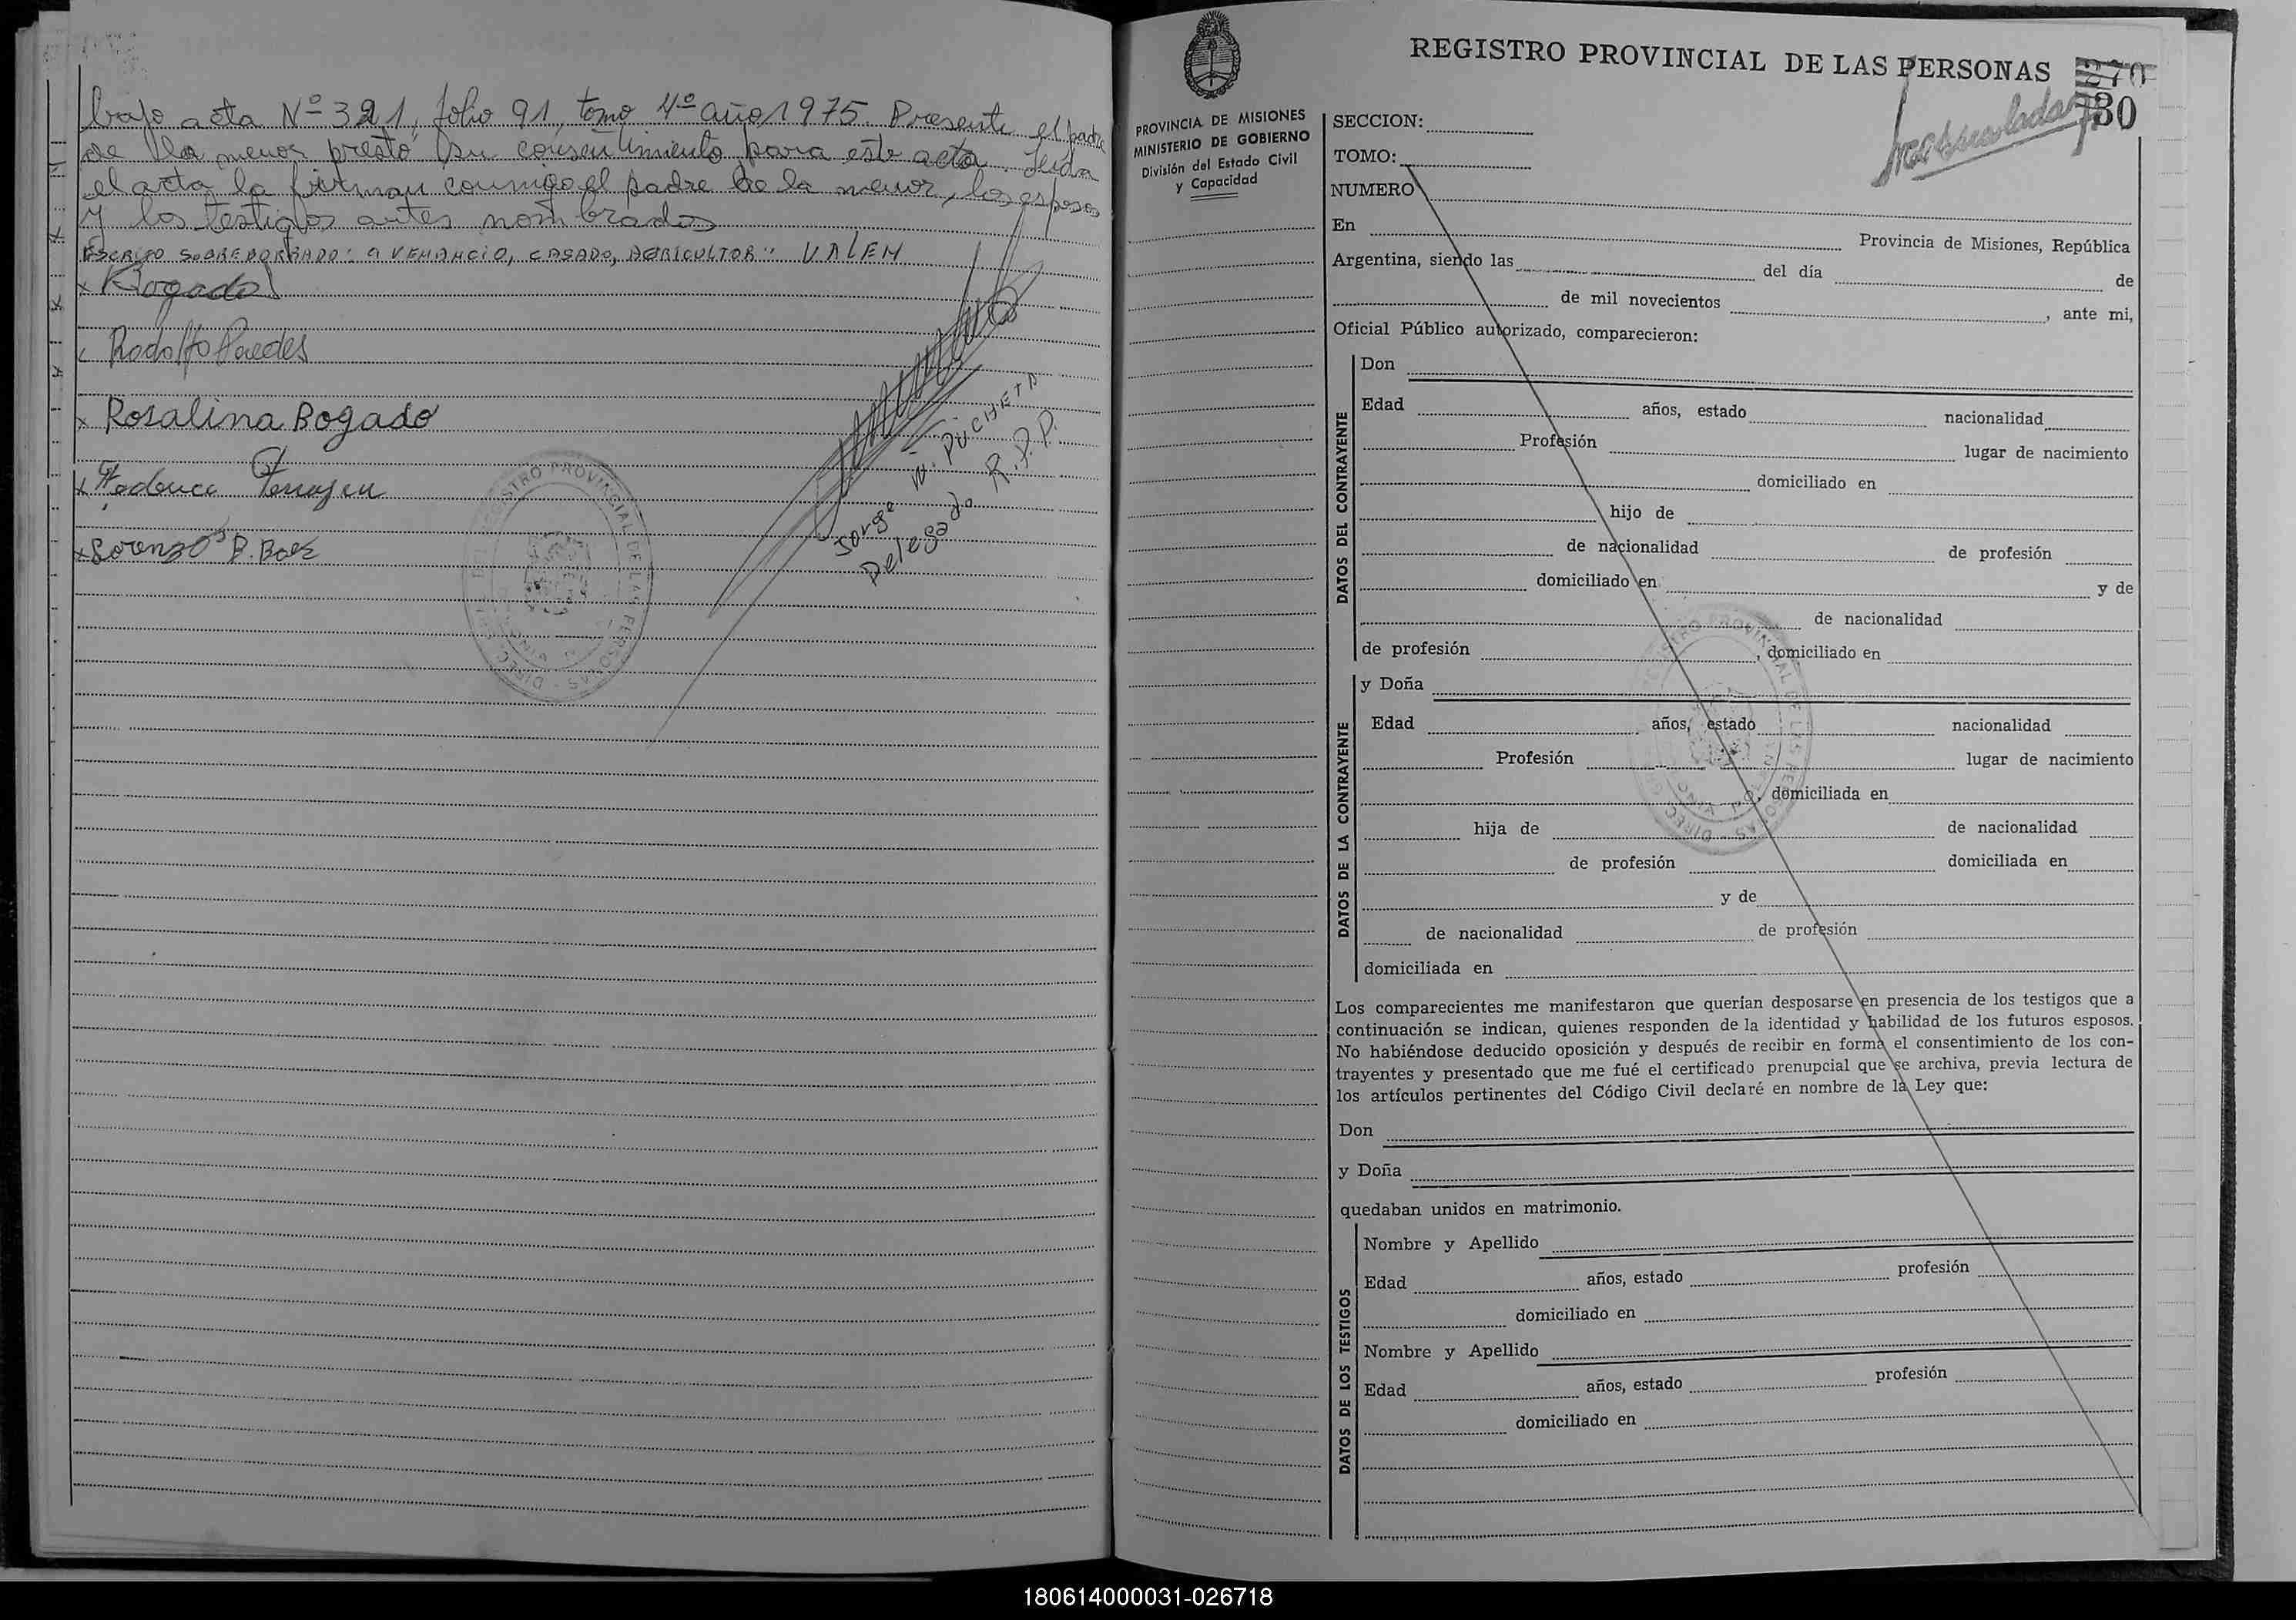 bajo acta Nº 321, folio 91, tomo 4º año 1975. Presente el padre
de la menor prestó su consentimiento para este acto. Leida
el acta la firman conmigo el padre de la menor, los esposos
y los testigos antes nombrados
ESCRITO SOBREBORRADO: a VENANCIO, CASADO, AGRICULTOR: VALEN
x Bogado
Rodolfo Paredes
x Rosalina Bogado
x Lorenzo B. Baez
Jorge W. PUCHETA
Delegado R.P.P.
REGISTRO PROVINCIAL DE LAS PERSONAS
270
130
PROVINCIA DE MISIONES
MINISTERIO DE GOBIERNO
División del Estado Civil
y Capacidad
REGISTRO PROVINCIAL DE LAS PERSONAS
SECCION:
TOMO:
NUMERO
En Provincia de Misiones, República
Argentina, siendo las del día de
de mil novecientos , ante mi,
Oficial Público autorizado, comparecieron:
DATOS DEL CONTRAYENTE
Don
Edad años, estado nacionalidad
Profesión lugar de nacimiento
domiciliado en
hijo de
de nacionalidad de profesión
domiciliado en y de
de nacionalidad
de profesión , domiciliado en
DATOS DE LA CONTRAYENTE
y Doña
Edad años, estado nacionalidad
Profesión lugar de nacimiento
, domiciliada en
hija de de nacionalidad
de profesión domiciliada en
y de
de nacionalidad de profesión
domiciliada en
Los comparecientes me manifestaron que querían desposarse en presencia de los testigos que a
continuación se indican, quienes responden de la identidad y habilidad de los futuros esposos.
No habiéndose deducido oposición y después de recibir en forma el consentimiento de los con-
trayentes y presentado que me fué el certificado prenupcial que se archiva, previa lectura de
los artículos pertinentes del Código Civil declaré en nombre de la Ley que:
Don
y Doña
quedaban unidos en matrimonio.
DATOS DE LOS TESTIGOS
Nombre y Apellido
Edad años, estado profesión
domiciliado en
Nombre y Apellido
Edad años, estado profesión
domiciliado en
180614000031-026718